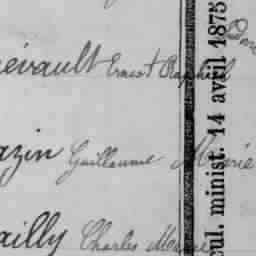 évault Ernest Raphaël
azin Guillaume Marie
ailly Charles Marie
cul. minist. 14 avril 1875